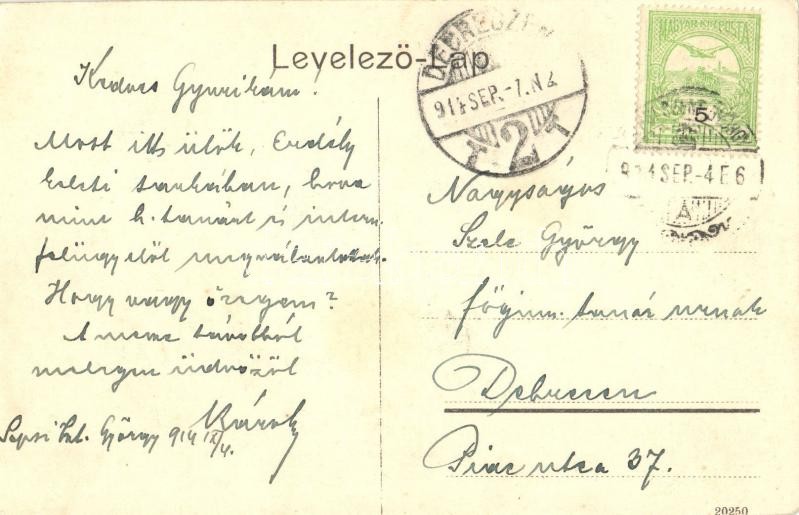 Levelező-Lap
Kedves Gyurikám!
Most itt ülök, Erdély
keleti sarkában, hova
mint h. tanárt és intern.
felügyelőt megválasztottak.
Hogy vagy öregem?
A messze távolból
melegen üdvözöl
Károly
Sepsi Szt. György 914 IX/4.
DEBRECZEN
914 SEP.-7.N 2
2
MAGYAR KIR. POSTA
5
914 SEP.-4 E 6
A
Nagyságos
Szele György
főgimn. tanár urnak
Debrecen
Piac utca 37.
20250